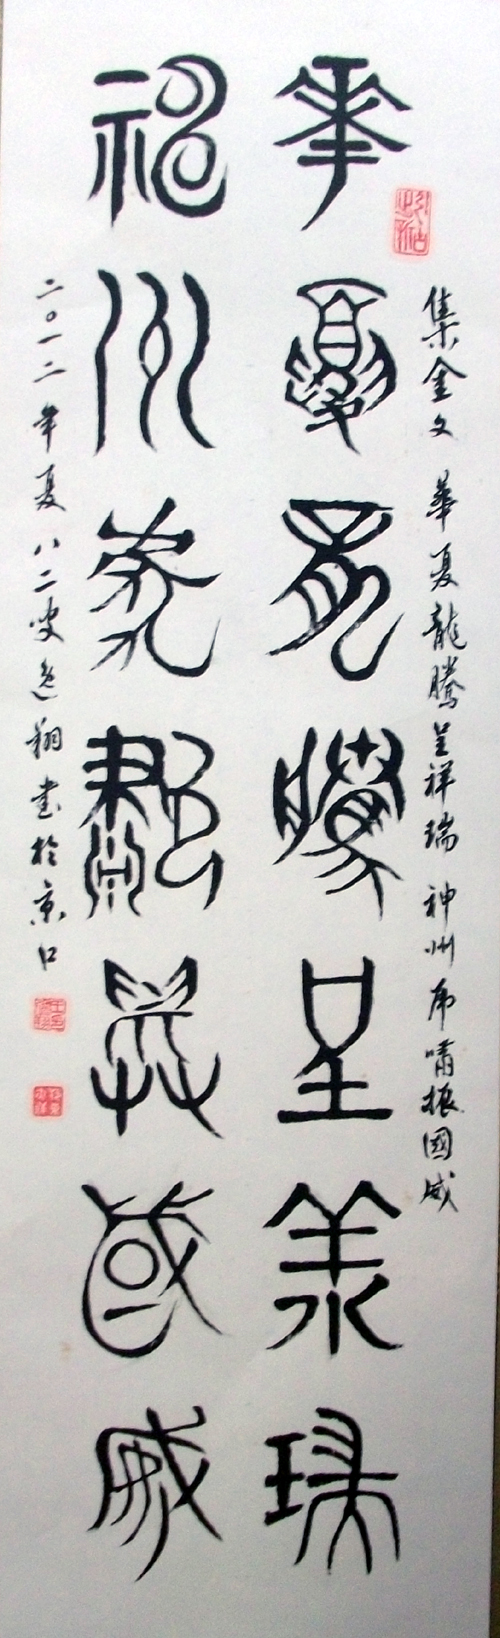 集金文 華夏龍騰呈祥瑞 神州虎嘯振國威
華夏龍騰呈祥瑞
神州虎嘯振國威
二〇一二年夏八二叟逸翔书於京口